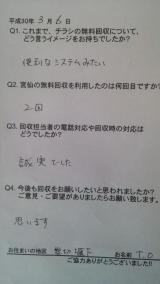 平成30年 3月 6日
Q1. これまで、チラシの無料回収について、
どう言うイメージをお持ちでしたか?
便利なシステムみたい
Q2. 宮仙の無料回収を利用したのは何回目ですか?
2回
Q3. 回収担当者の電話対応や回収時の対応は
どうでしたか?
誠実でした
Q4. 今後も回収をお願いしたいと思われましたか?
ご意見・ご要望がありましたらお願い致します。
思います
お住まいの地区
お名前 T.O
ご協力ありがとうございました!!